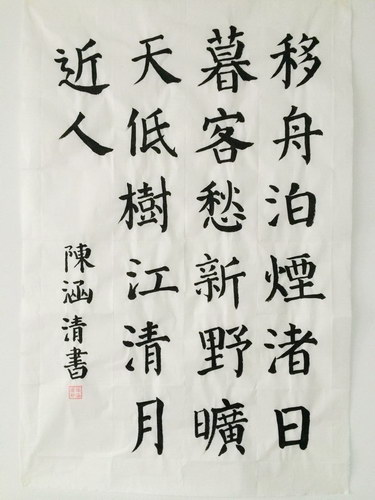 移舟泊煙渚日
暮客愁新野曠
天低樹江清月
近人
陳涵清書